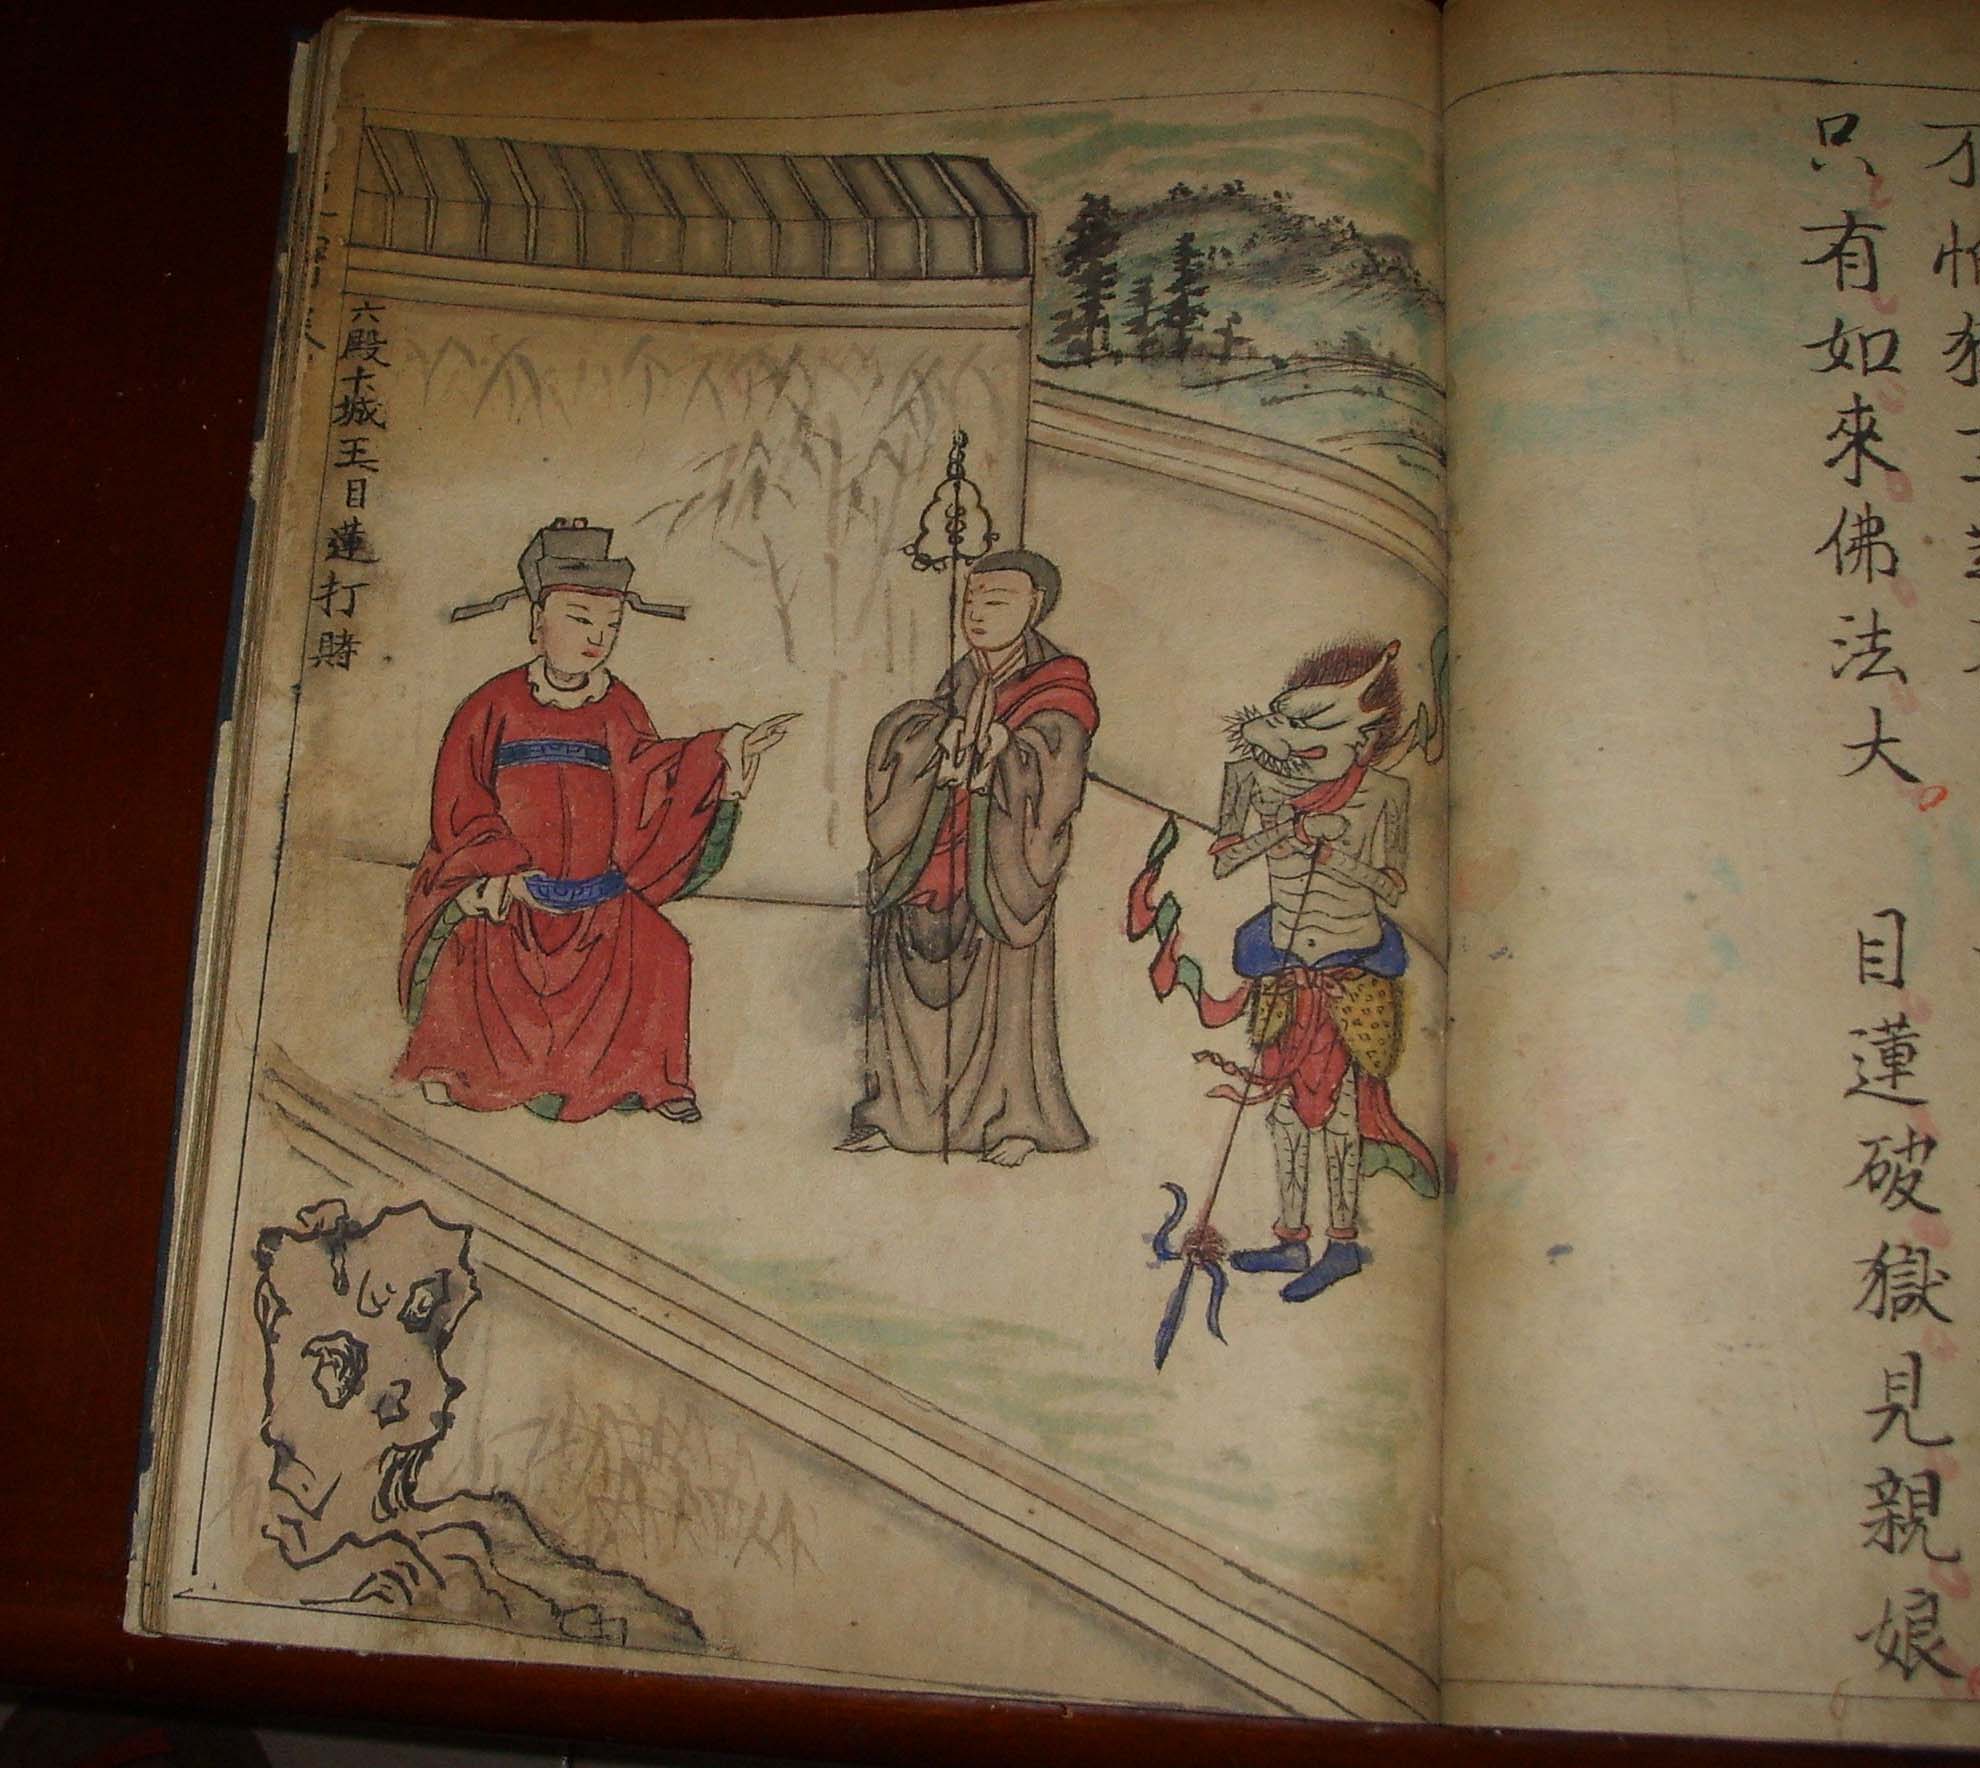 只有如來佛法大 目蓮破獄見親娘
六殿卞城王目蓮打賭